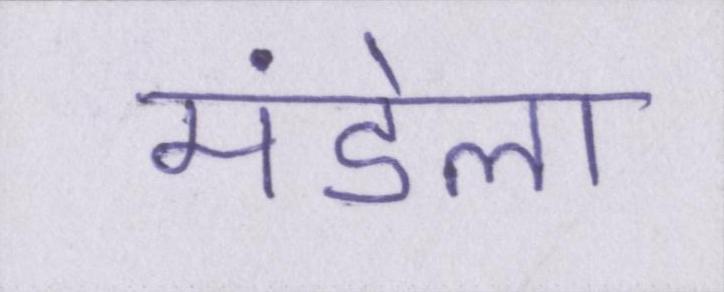 मंडेला